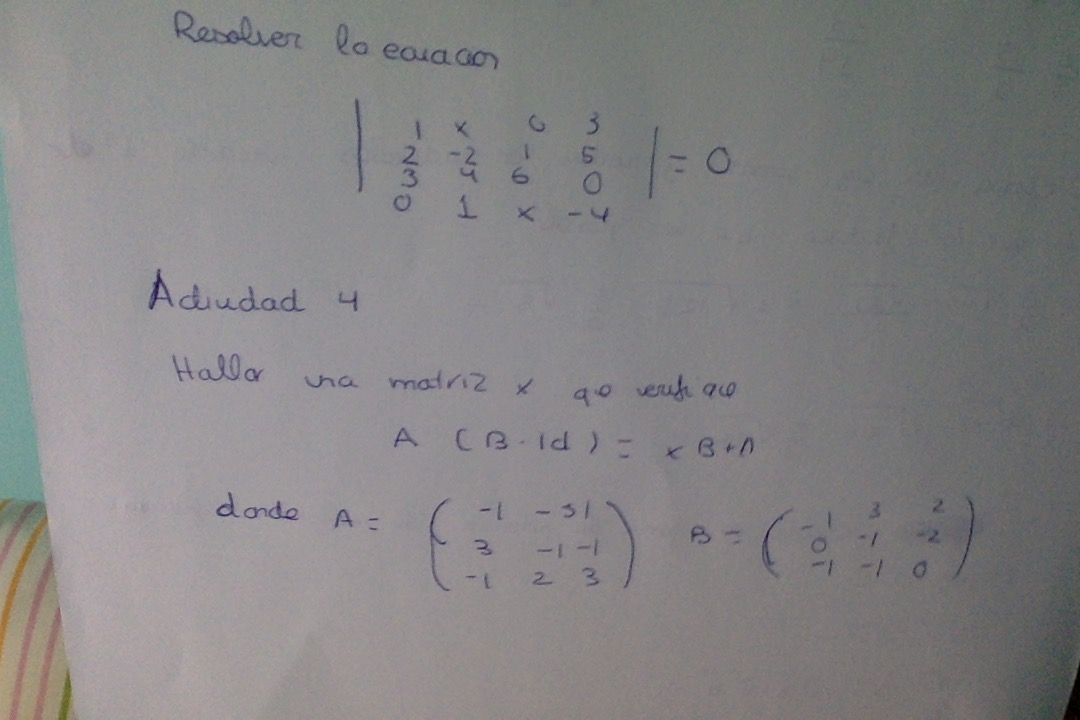 Resolver la ecuacion
| 1 x 0 3
2 -2 1 5
3 4 6 0
0 1 x -4 | = 0
Actividad 4
Hallar una matriz x que verifique
A (B - Id) = x B + A
donde A = ( -1 -3 1
3 -1 -1
-1 2 3 ) B = ( -1 3 2
0 -1 -2
-1 -1 0 )